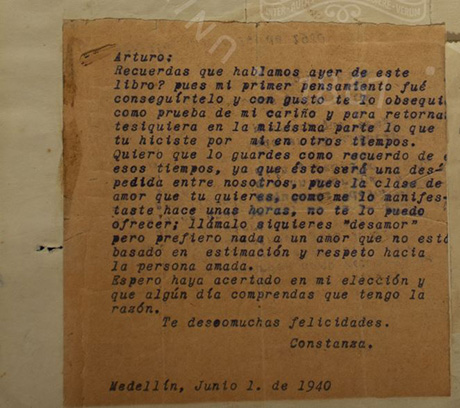 Arturo;
Recuerdas que hablamos ayer de este
libro? pues mi primer pensamiento fué
conseguírtelo y con gusto te lo obsequi
como prueba de mi cariño y para retorna
tesiquiera en la milésima parte lo que
tu hiciste por mi en otros tiempos.
Quiero que lo guardes como recuerdo de
esos tiempos, ya que ésto será una des-
pedida entre nosotros, pues la clase de
amor que tu quieres, como me lo manifes-
taste hace unas horas, no te lo puedo
ofrecer; llámalo siquieres "desamor"
pero prefiero nada a un amor que no está
basado en estimación y respeto hacia
la persona amada.
Espero haya acertado en mi elección y
que algún día comprendas que tengo la
razón.
Te deseomuchas felicidades.
Constanza.
Medellín, Junio 1. de 1940